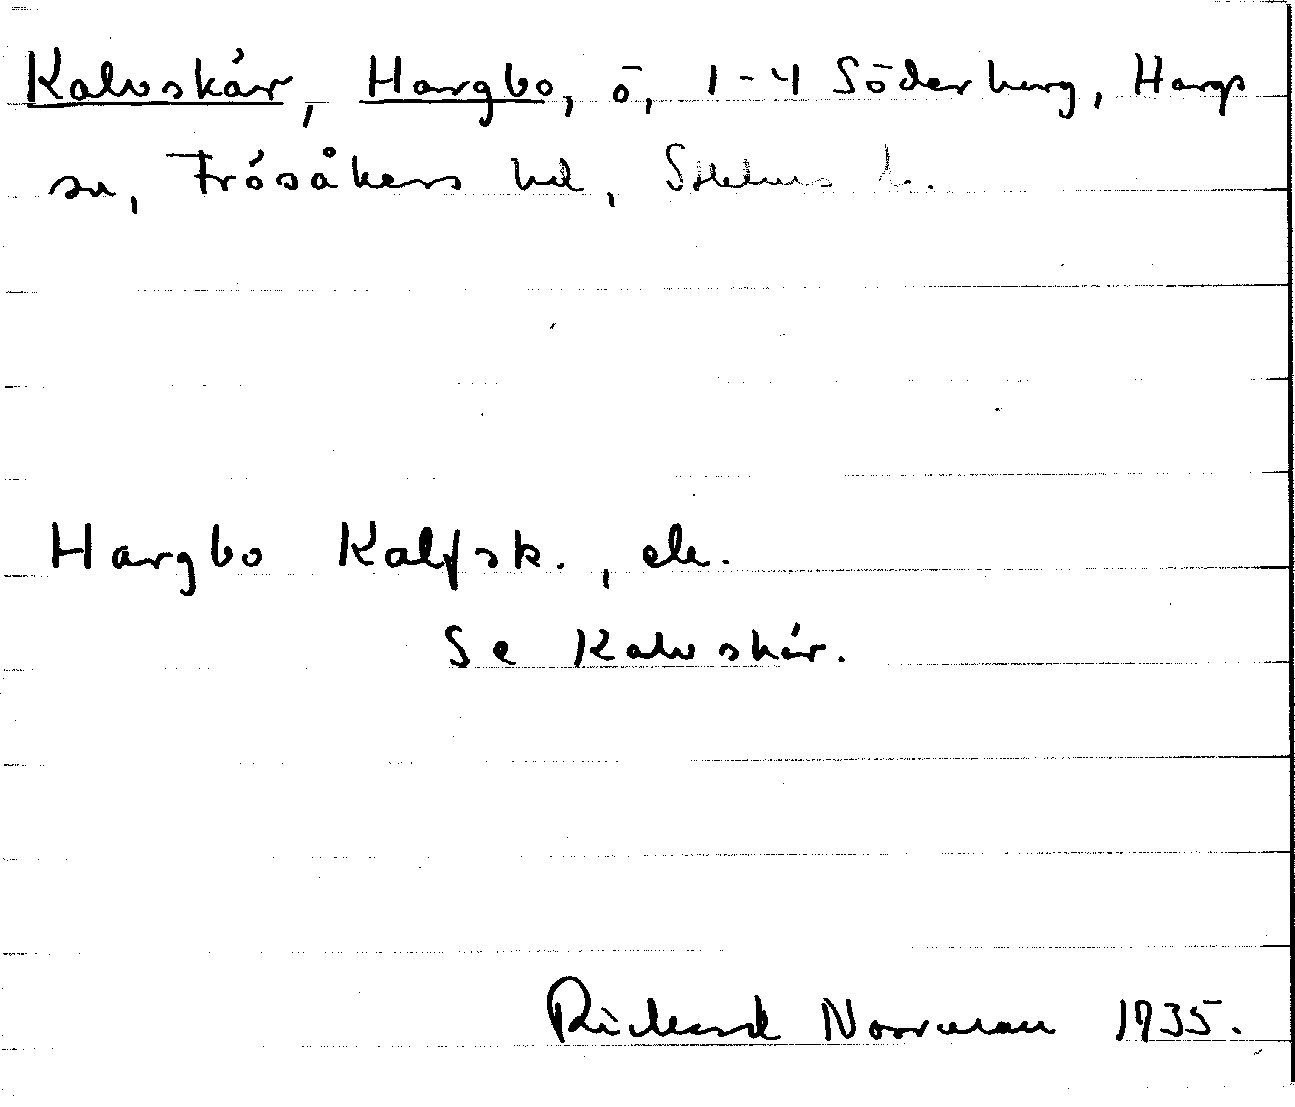 Kalvskär, Hargbo, ö, 1-4 Söderberg, Hargs
sn, Frösåkers hd, Sthlms l.
Hargbo Kalfsk., ek.
Se Kalvskär.
Rickard Norrman 1935.